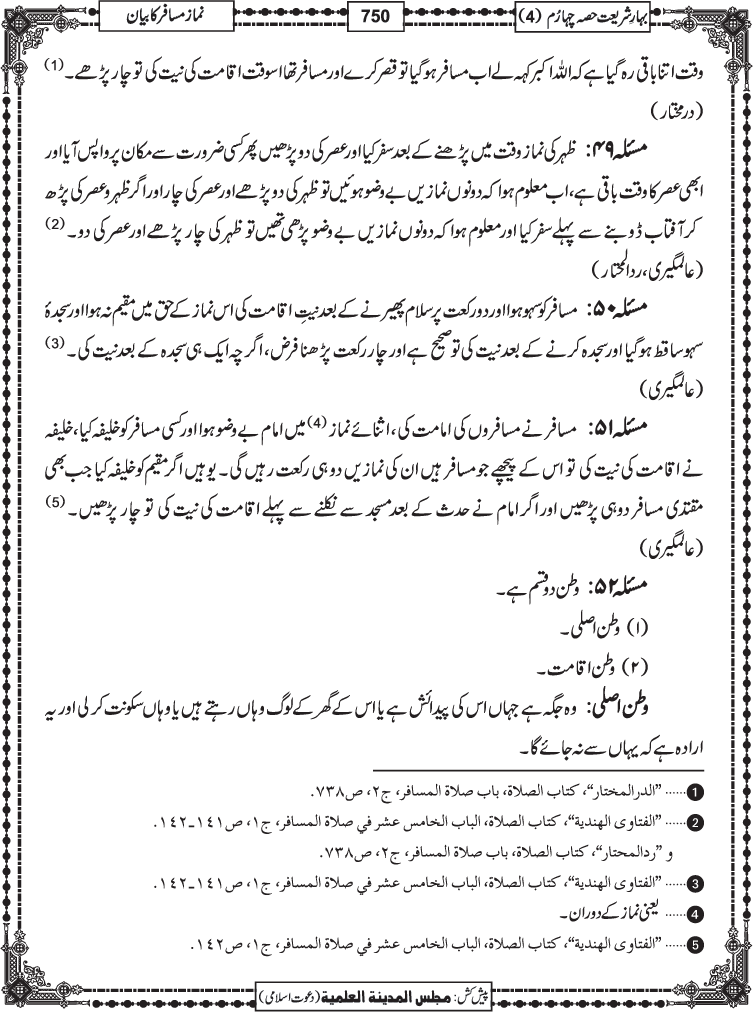 بہارِشریعت حصہ چہارم (4)
750
نمازِ مسافر کا بیان
وقت اتنا باقی رہ گیا ہے کہ اللہ اکبر کہہ لے اب مسافر ہوگیا تو قصر کرے اور مسافر تھا اسوقت اقامت کی نیت کی تو چار پڑھے۔ (1)
(درمختار)
مسئلہ ۴۹: ظہر کی نماز وقت میں پڑھنے کے بعد سفر کیا اور عصر کی دو پڑھیں پھر کسی ضرورت سے مکان پر واپس آیا اور
ابھی عصر کا وقت باقی ہے، اب معلوم ہوا کہ دونوں نمازیں بے وضو ہوئیں تو ظہر کی دو پڑھے اور عصر کی چار اور اگر ظہر و عصر کی پڑھ
کر آفتاب ڈوبنے سے پہلے سفر کیا اور معلوم ہوا کہ دونوں نمازیں بے وضو پڑھی تھیں تو ظہر کی چار پڑھے اور عصر کی دو۔ (2)
(عالمگیری، ردالمحتار)
مسئلہ ۵۰: مسافر کو سہو ہوا اور دو رکعت پر سلام پھیرنے کے بعد نیتِ اقامت کی اس نماز کے حق میں مقیم نہ ہوا اور سجدۂ
سہو ساقط ہوگیا اور سجدہ کرنے کے بعد نیت کی تو صحیح ہے اور چار رکعت پڑھنا فرض، اگرچہ ایک ہی سجدہ کے بعد نیت کی۔ (3)
(عالمگیری)
مسئلہ ۵۱: مسافر نے مسافروں کی امامت کی، اثنائے نماز (4) میں امام بے وضو ہوا اور کسی مسافر کو خلیفہ کیا، خلیفہ
نے اقامت کی نیت کی تو اس کے پیچھے جو مسافر ہیں ان کی نمازیں دو ہی رکعت رہیں گی۔ یوہیں اگر مقیم کو خلیفہ کیا جب بھی
مقتدی مسافر دو ہی پڑھیں اور اگر امام نے حدث کے بعد مسجد سے نکلنے سے پہلے اقامت کی نیت کی تو چار پڑھیں۔ (5)
(عالمگیری)
مسئلہ ۵۲: وطن دو قسم ہے۔
(۱) وطن اصلی۔
(۲) وطن اقامت۔
وطن اصلی: وہ جگہ ہے جہاں اس کی پیدائش ہے یا اس کے گھر کے لوگ وہاں رہتے ہیں یا وہاں سکونت کر لی اور یہ
ارادہ ہے کہ یہاں سے نہ جائے گا۔
1 ...... ”الدرالمختار“، کتاب الصلاة، باب صلاة المسافر، ج۲، ص۷۳۸.
2 ...... ”الفتاوی الهندية“، کتاب الصلاة، الباب الخامس عشر في صلاة المسافر، ج۱، ص۱۴۱-۱۴۲.
و ”ردالمحتار“، کتاب الصلاة، باب صلاة المسافر، ج۲، ص۷۳۸.
3 ...... ”الفتاوی الهندية“، کتاب الصلاة، الباب الخامس عشر في صلاة المسافر، ج۱، ص۱۴۱-۱۴۲.
4 ...... یعنی نماز کے دوران۔
5 ...... ”الفتاوی الهندية“، کتاب الصلاة، الباب الخامس عشر في صلاة المسافر، ج۱، ص۱۴۲.
پیش کش: مجلس المدينة العلمية (دعوتِ اسلامی)